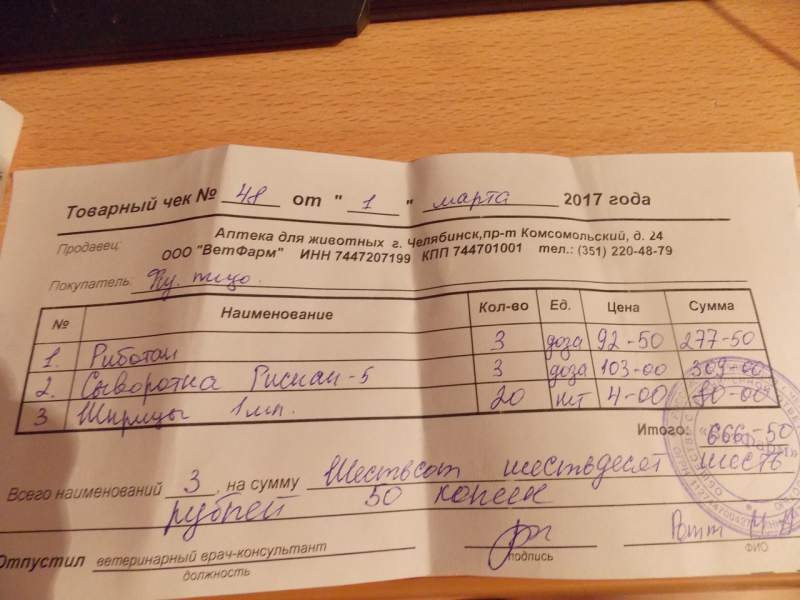 Товарный чек № 48 от " 1 " марта 2017 года
Продавец: Аптека для животных г. Челябинск,пр-т Комсомольский, д. 24
ООО "ВетФарм" ИНН 7447207199 КПП 744701001 тел.: (351) 220-48-79
Покупатель: лицо
№ Наименование Кол-во Ед. Цена Сумма
1. Риботан 3 доза 92-50 277-50
2. Сыворотка Гискан-5 3 доза 103-00 309-00
3 Шприцы 1мл. 20 шт 4-00 80-00
Итого: 666-50
Всего наименований 3 , на сумму Шестьсот шестьдесят шесть
рублей 50 копеек
Отпустил ветеринарный врач-консультант
должность подпись ФИО